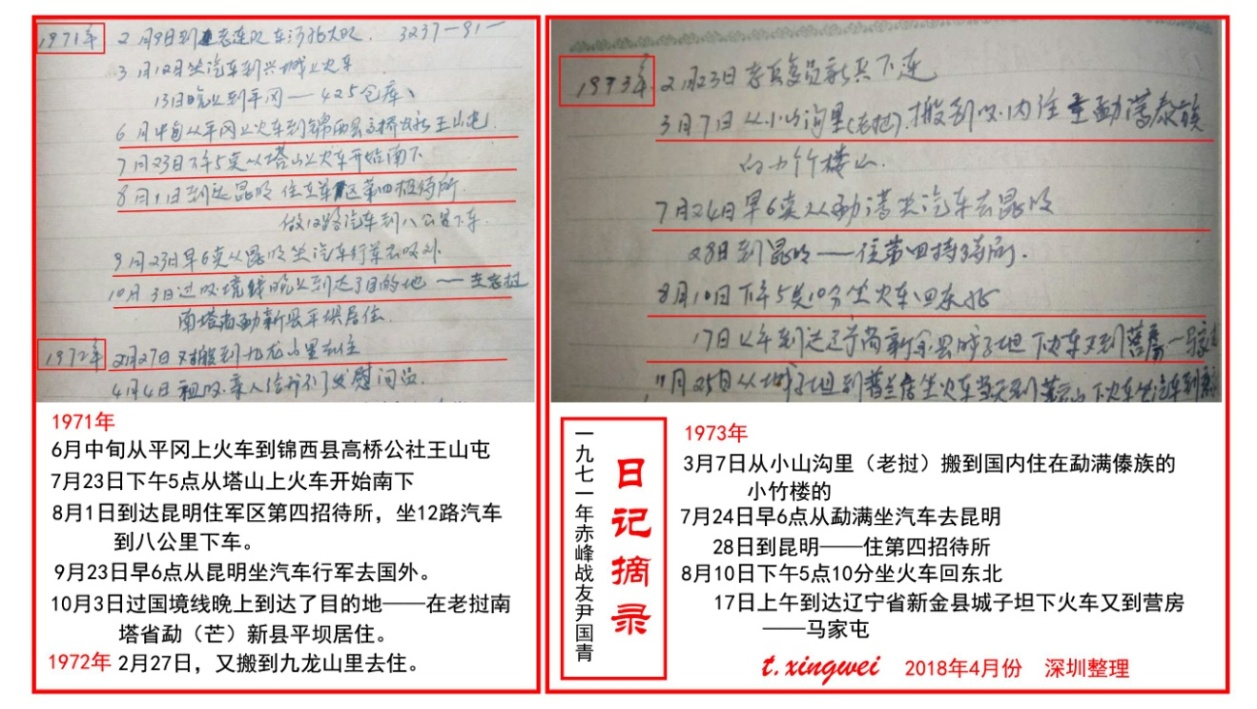 1971年 2月9日到 连队 车河北大队. 3237—91—
3月12日坐汽车到兴城上火车
13日晚上到平冈——425仓库、
6月中旬从平冈上火车到锦西县高桥公社王山屯.
7月23日下午5点从塔山上火车开始南下
8月1日到达昆明住在军区第四招待所.
做12路汽车到八公里下车.
9月23日早6点从昆明坐汽车行军去国外.
10月3日过国境线晚上到达了目的地——在老挝
南塔省勐新县平坝居住.
1972年 2月27日又搬到九龙山里去住
4月4日祖国亲人给我们发慰问品.
1973年. 2月23日 复员新兵下连
3月7日从小山沟里(老挝).搬到国内住 勐满傣族
的小竹楼
7月24日早6点从勐满坐汽车去昆明
28日到昆明——住第四招待所.
8月10日下午5点10分坐火车回东北
17日上午到达辽宁省新金县城子坦下火车又到营房—
11月25日从城子坦到普兰店坐火车当天到 山下火车坐汽车到
1971年
6月中旬从平冈上火车到锦西县高桥公社王山屯
7月23日下午5点从塔山上火车开始南下
8月1日到达昆明住军区第四招待所，坐12路汽车
到八公里下车。
9月23日早6点从昆明坐汽车行军去国外。
10月3日过国境线晚上到达了目的地——在老挝南
塔省勐（芒）新县平坝居住。
1972年 2月27日，又搬到九龙山里去住。
一九七一年赤峰战友尹国青
日记摘录
1973年
3月7日从小山沟里（老挝）搬到国内住在勐满傣族的
小竹楼的
7月24日早6点从勐满坐汽车去昆明
28日到昆明——住第四招待所
8月10日下午5点10分坐火车回东北
17日上午到达辽宁省新金县城子坦下火车又到营房
——马家屯
t.xingwei 2018年4月份 深圳整理